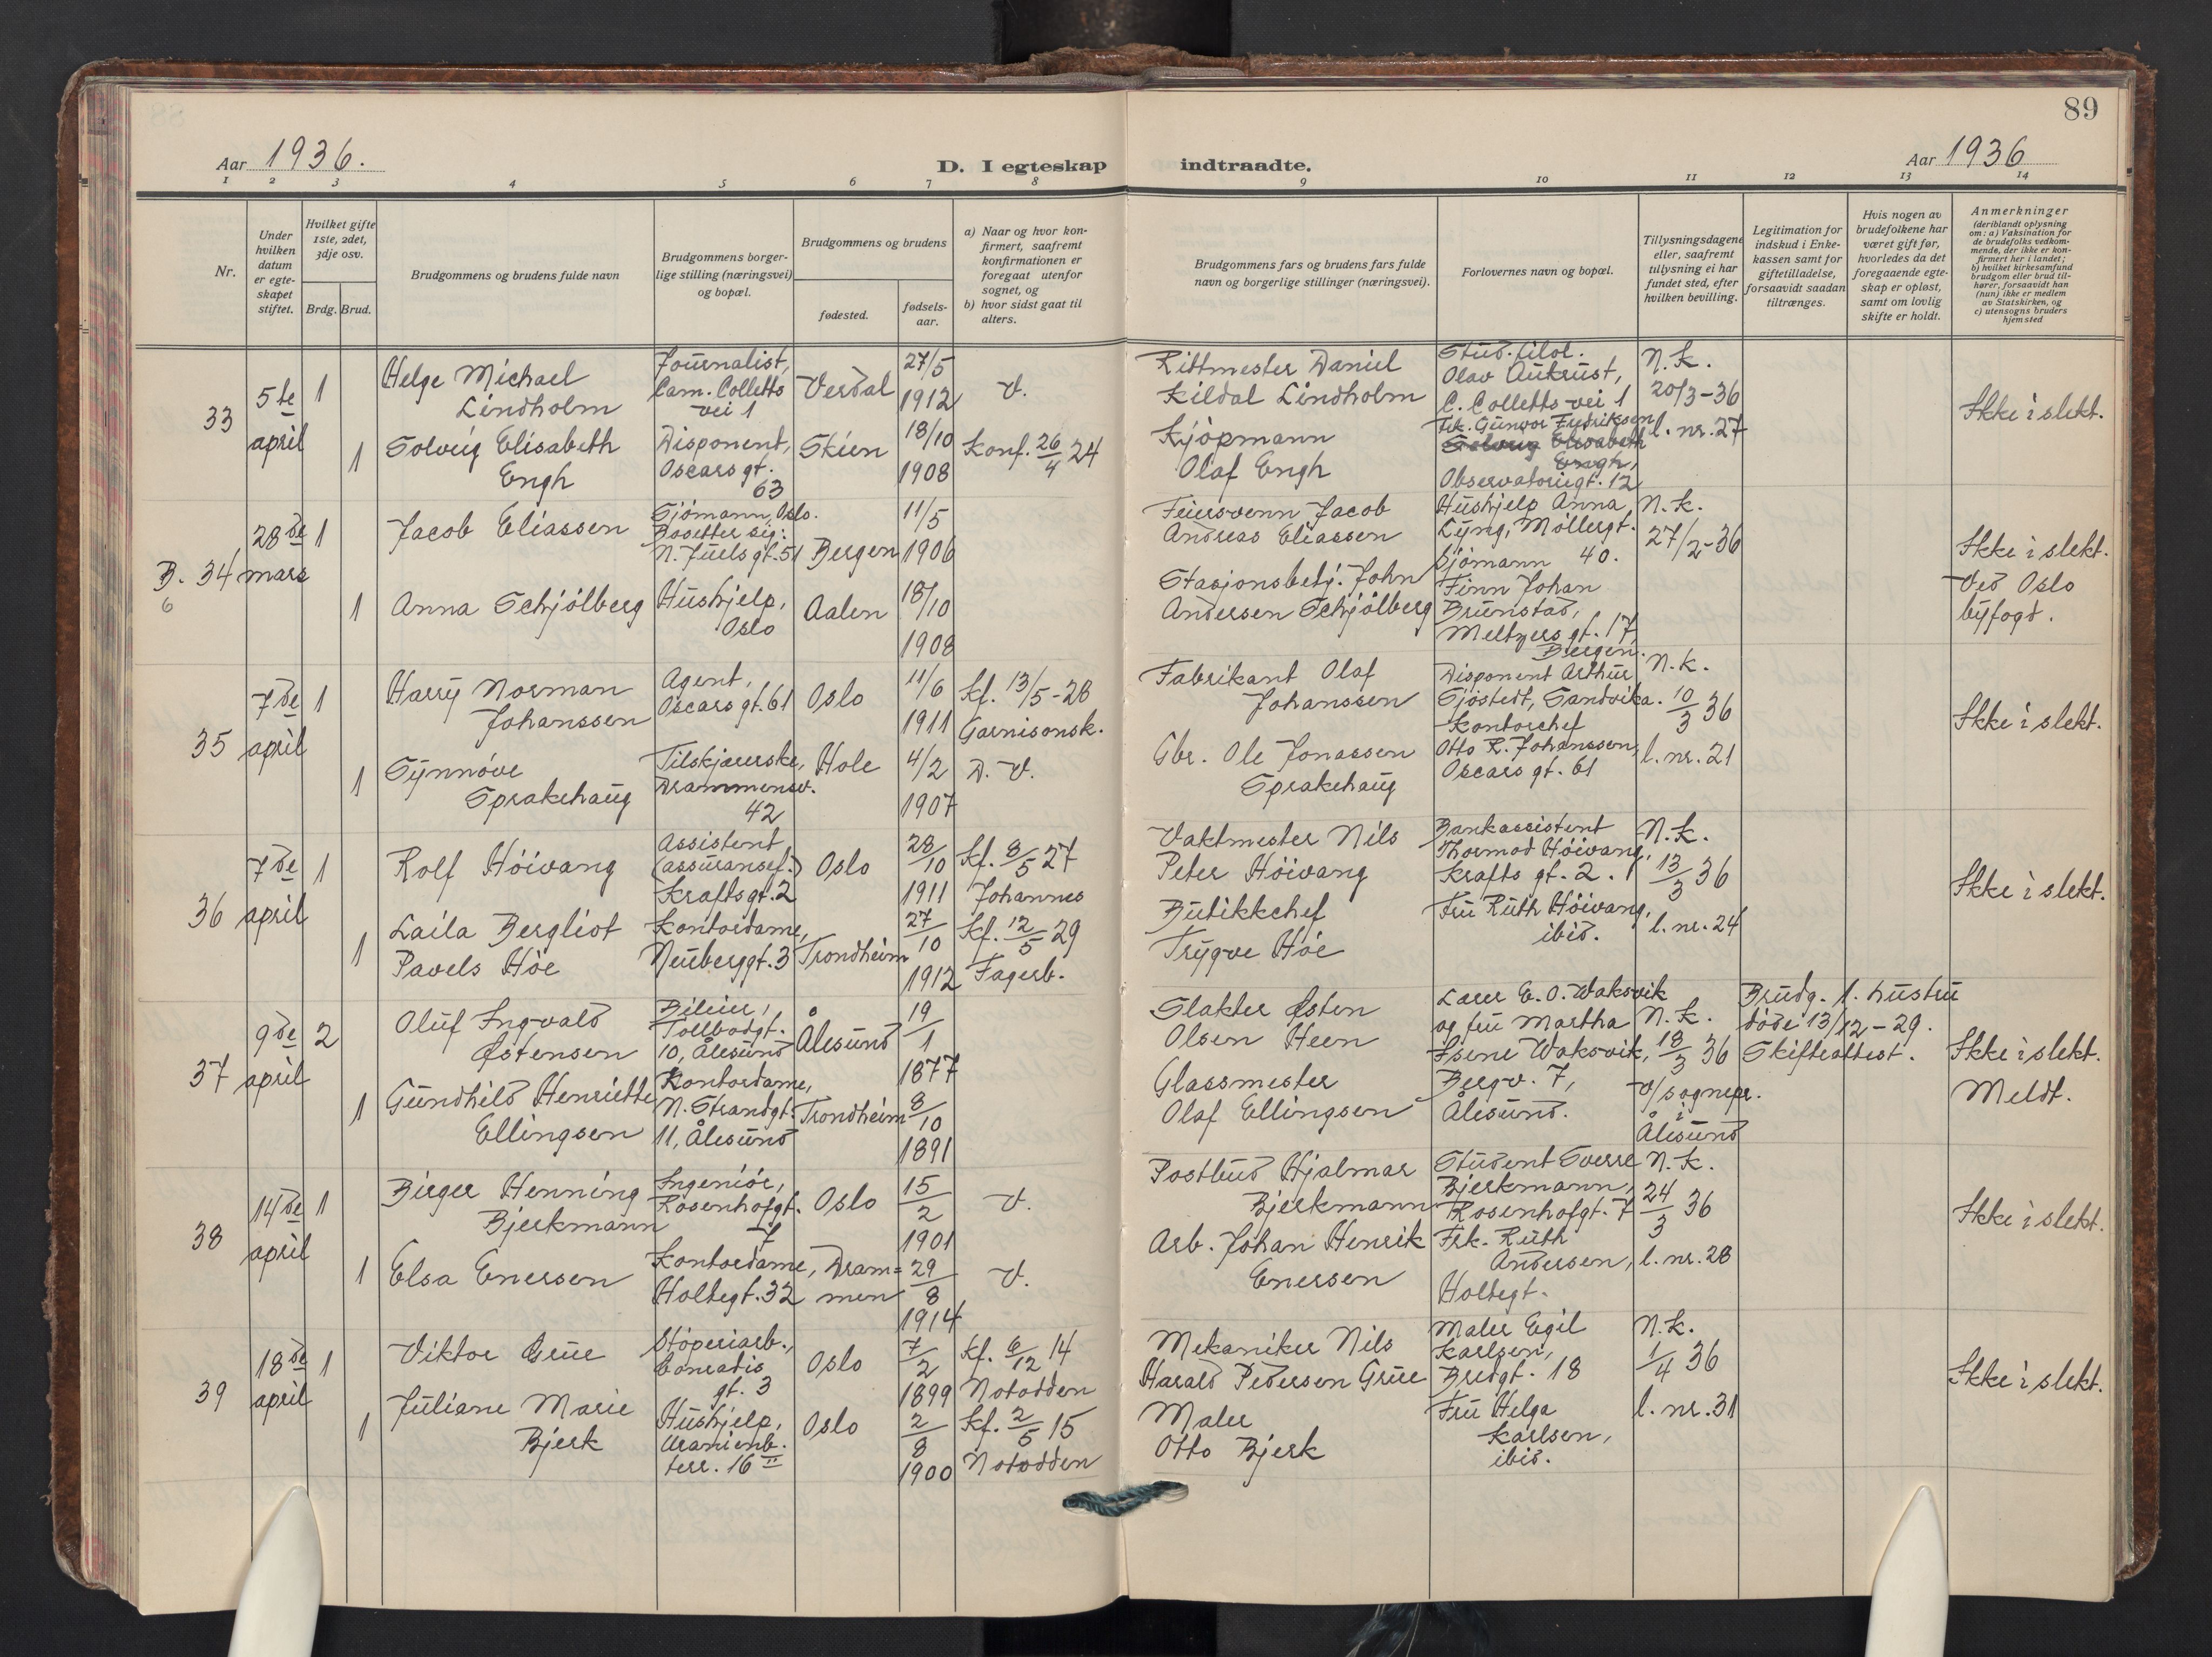 89
Aar 1936.
D. I egteskap indtraadte.
Aar 1936
1 2 3 4 5 6 7 8 9 10 11 12 13 14
Nr.
Under hvilken datum er egte-skapet stiftet.
Hvilket gifte 1ste, 2det, 3dje osv.
Brdg. Brud.
Brudgommens og brudens fulde navn
Brudgommens borger-lige stilling (næringsvei) og bopæl.
Brudgommens og brudens
fødested.
fødsels-aar.
a) Naar og hvor kon-firmert, saafremt konfirmationen er foregaat utenfor sognet, og
b) hvor sidst gaat til alters.
Brudgommens fars og brudens fars fulde navn og borgerlige stillinger (næringsvei).
Forlovernes navn og bopæl.
Tillysningsdagene eller, saafremt tillysning ei har fundet sted, efter hvilken bevilling.
Legitimation for indskud i Enke-kassen samt for giftetilladelse, forsaavidt saadan tiltrænges.
Hvis nogen av brudefolkene har været gift før, hvorledes da det foregaaende egte-skap er opløst, samt om lovlig skifte er holdt.
Anmerkninger
(deriblandt oplysning om: a) Vaksination for de brudefolks vedkom-mende, der ikke er kon-firmert her i landet; b) hvilket kirkesamfund brudgom eller brud til-hører, forsaavidt han (hun) ikke er medlem av Statskirken, og c) utensogns bruders hjemsted
33
5te april
1
Helge Michael
Lindholm
Journalist,
Cam. Colletts
vei 1
Verdal
27/5
1912
V.
Rittmester Daniel
Kildal Lindholm
Stud. filol.
Olav Aukrust,
C. Colletts vei 1
N.K.
20/3-36
l. nr. 27
Ikke i slekt.
1
Solveig Elisabeth
Engh
Disponent,
Oscars gt.
63
Skien
18/10
1908
Konf. 26/4 24
Kjöpmann
Olaf Engh
Frk. Gunvor Fredriksen
Solveig Elisabeth
Engh,
Observatoriegt. 12
B. 34
6
28de mars
1
Jacob Eliassen
Sjömann, Oslo.
Bosetter sig:
N. Juels gt. 51
Bergen
11/5
1906
Feiersvenn Jacob
Andreas Eliassen
Hushjelp Anna
Lyng, Möllergt.
40.
N.K.
27/2-36
Ikke i slekt.
Ved Oslo
byfogd.
1
Anna Schjölberg
Hushjelp,
Oslo
Aalen
18/10
1908
Stasjonsbetj. John
Andersen Schjölberg
Sjömann
Finn Johan
Brunstad,
Meltzers gt. 17,
Bergen.
35
7de april
1
Harry Norman
Johanssen
Agent,
Oscars gt. 61
Oslo
11/6
1911
Kf. 13/5-28
Garnisonsk.
Fabrikant Olaf
Johanssen
Disponent Arthur
Sjöstedt, Sandvika.
N.K.
10/3 36
l. nr. 21
Ikke i slekt.
1
Synnöve
Sprakehaug
Tilskjærerske,
Drammensv.
42
Hole
4/2
1907
D. V.
Gbr. Ole Jonassen
Sprakehaug
Kontorchef
Otto R. Johanssen,
Oscars gt. 61
36
7de april
1
Rolf Höivang
Assistent
(assuransef.)
Krafts gt. 2
Oslo
28/10
1911
Kf. 8/5 27
Johannes
Vaktmester Nils
Peter Höivang
Bankassistent
Thormod Höivang,
Krafts gt. 2.
N.K.
13/3 36
l. nr. 24
Ikke i slekt.
1
Laila Bergliot
Pavels Höe
Kontordame,
Neuberggt. 3
Trondheim
27/10
1912
Kf. 12/5 29
Fagerb.
Butikkchef
Trygve Höe
Fru Ruth Höivang,
ibid.
37
9de april
2
Oluf Ingvald
Østensen
Bileier,
Tollbodgt.
10, Ålesund
Ålesund
19/1
1877
Slakter Østen
Olsen Heen
Lærer E. O. Waksvik
og fru Martha
Isene Waksvik,
Bergv. 7,
Ålesund.
N.K.
18/3 36
v/sognepr.
i
Ålesund
Brudg. f. hustru
döde 13/12-29.
Skifteattest.
Ikke i slekt.
Meldt.
1
Gundhild Henriette
Ellingsen
Kontordame,
N. Strandgt.
11, Ålesund
Trondheim
8/10
1891
Glassmester
Olaf Ellingsen
38
14de april
1
Birger Henning
Bjerkmann
Ingeniör,
Rosenhofgt.
7
Oslo
15/2
1901
V.
Postbud Hjalmar
Bjerkmann
Student Sverre
Bjerkmann,
Rosenhofgt. 7
N.K.
24/3 36
l. nr. 28
Ikke i slekt.
1
Elsa Enersen
Kontordame,
Holtegt. 32
Dram=
men
29/8
1914
V.
Arb. Johan Henrik
Enersen
Frk. Ruth
Andersen,
Holtegt.
39
18de april
1
Viktor Grue
Stöperiarb.,
Conradis
gt. 3
Oslo
7/2
1899
Kf. 6/12 14
Notodden
Mekaniker Nils
Harald Pedersen Grue
Maler Egil
Karlsen,
Bredgt. 18
N.K.
1/4 36
l. nr. 31
Ikke i slekt.
1
Juliane Marie
Bjerk
Hushjelp,
Uranienb.
terr. 16 II
Oslo
2/8
1900
Kf. 2/5 15
Notodden
Maler
Otto Bjerk
Fru Helga
Karlsen,
ibid.